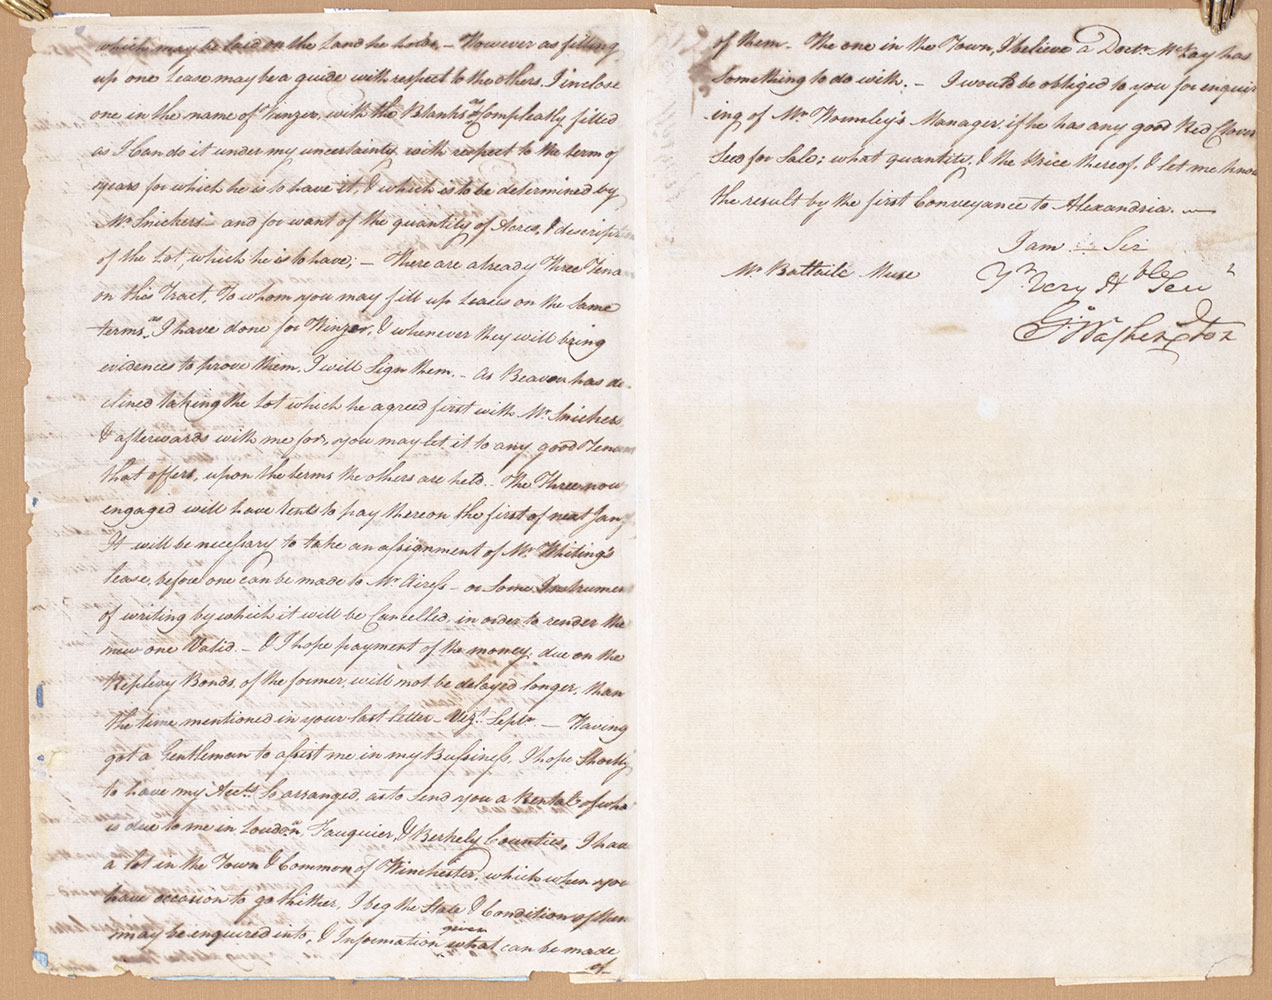 which may be laid on the Land he holds – However as filling
up one Lease may be a guide with respect to the others, I inclose
one in the name of Winzer, with the Blanks as Compleatly filled
as I can do it under my uncertainty with respect to the term of
years for which he is to have it, & which is to be determined by
Mr. Snickers – and for want of the quantity of Acres, & descripti
of the Lot, which he is to have; – There are already Three Tena
on this Tract, To whom you may fill up Leases on the Same
terms as I have done for Winzer, & whenever they will bring
evidences to prove them, I will Sign them. – As Beavou has de-
clined taking the Lot which he agreed first with Mr. Snickers
& afterwards with me for, you may let it to any good Tenant
that offers, upon the terms the others are held. – The Three now
engaged will have Rents to pay thereon the first of next Jany
It will be necessary to take an assignment of Mr Whiting's
lease, before one can be made to Mr Airess – or Some Instrumen
of writing by which it will be Cancelled, in order to render the
new one Valid. – & I hope payment of the money, due on the
Replevy Bonds, of the former, will not be delayed longer, than
the time mentioned in your last letter – Vizt. Septr. – Having
got a Gentleman to assist me in my Bussiness, I hope Shortly
to have my Accts. So arranged, as to Send you a Rental of wha
is due to me in Loudon, Fauquier, & Berkely Counties. I hav
a lot in the Town & Common of Winchester, which when you
have occasion to go thither, I beg the State & Condition of them
may be enquired into, & Information given what can be made
of
of them. – The one in the Town, I believe a Doctr. McKay has
Something to do with. – I would be obliged to you for enquir
ing of Mr Wormley's Manager if he has any good Red Clover
Seed for Sale; what quantity, & the Price thereof, & let me know
the result by the first Conveyance to Alexandria. –
I am Sir
Mr Battaile Muse Yr. Very Hble Servt
Go: Washington